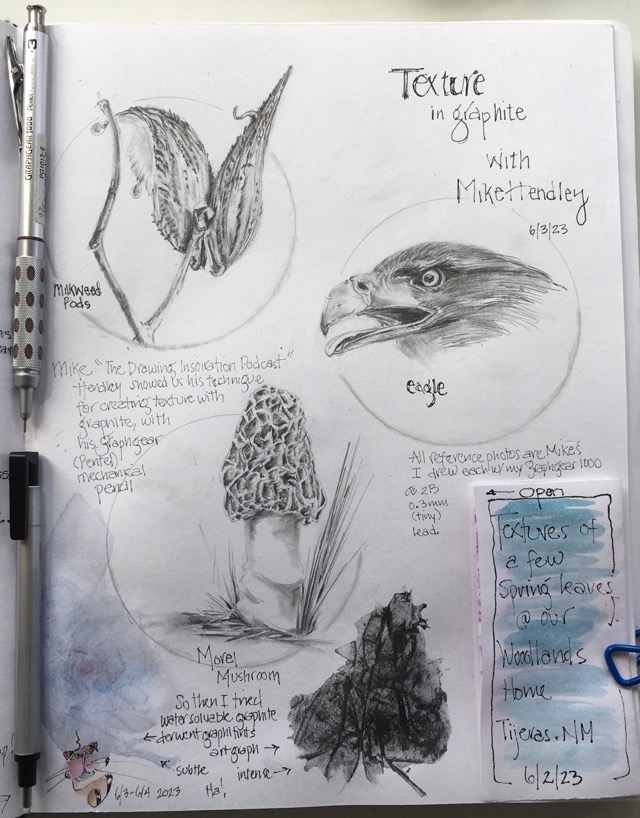 Texture
in graphite
with
Mike Hendley
6/3/23
Milkweed
Pods
eagle
Mike "The Drawing Inspiration Podcast"
Hendley showed us his technique
for creating texture with
graphite, with
his graphgear
(Pentel)
mechanical
pencil
All reference photos are Mike's
I drew each w/ my graphgear 1000
a 2B
0.3mm
(tiny)
lead.
Morel
Mushroom
So then I tried
water soluable graphite
← derwent graphitints
artgraph →
subtle intense →
Ha!
6/3-6/4 2023
← Open
Textures of
a few
Spring leaves
@ our
Woodlands
Home
Tijeras, NM
6/2/23
GRAPHGEAR 1000
3